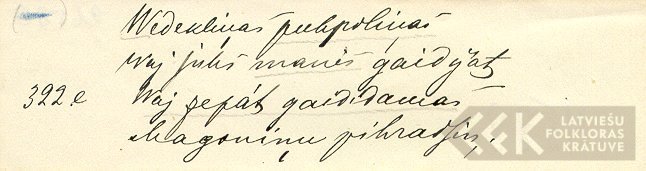 Wedekliņas puhpoliņas
Waj juhs manis gaidijat,
392.e Waj zepāt gaididamas
Magoniņu pihradsiņ.
LATVIEŠU
FOLKLORAS
KRĀTUVE